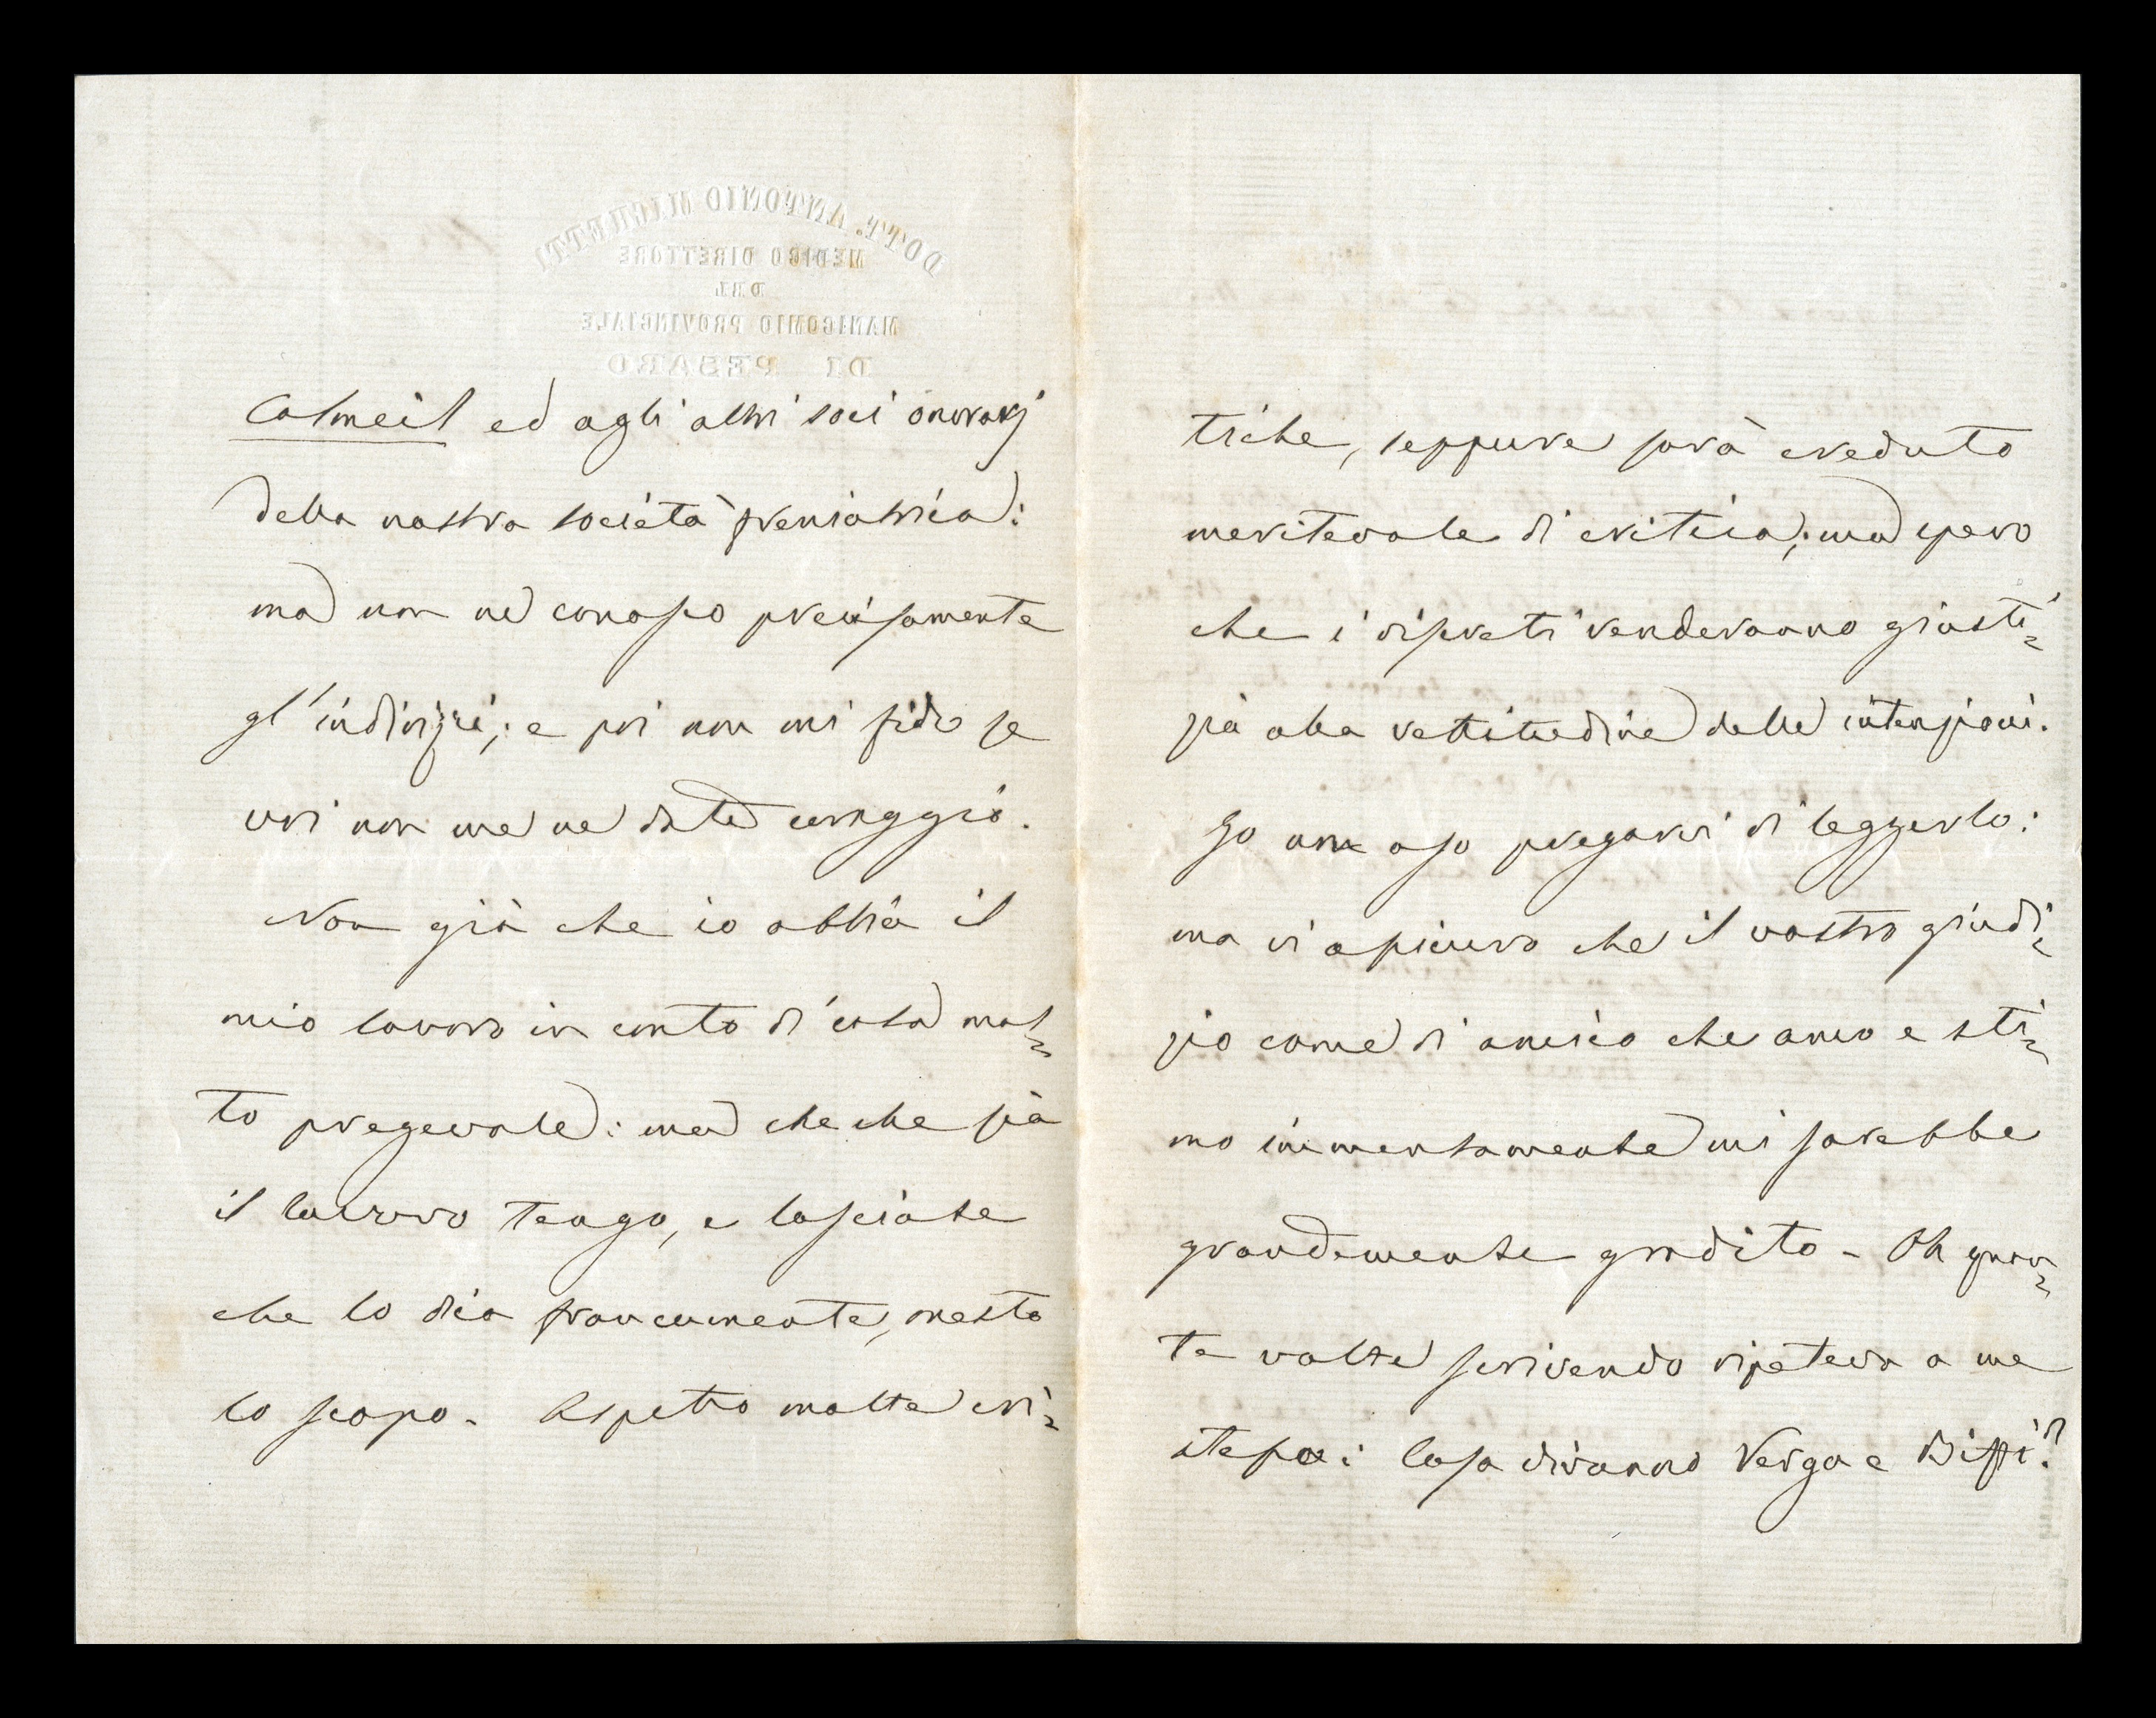 DOTT. ANTONIO MICHETTI
MEDICO DIRETTORE
DEL
MANICOMIO PROVINCIALE
DI PESARO
Calmeil ed agli altri soci onorarj
della nostra società freniatrica:
ma non ne conosco precisamente
gl'indirizzi; e poi non mi fido se
voi non me ne date coraggio.
Non già che io abbia il
mio lavoro in conto di cosa mol=
to pregevole: ma che che sia
il lavoro tengo, e lasciate
che lo dica francamente, onesto
lo scopo. Aspetto molte cri=
tiche, seppure sarà creduto
meritevole di critica; ma spero
che i discreti renderanno giusti=
zia alla rettitudine delle intenzioni.
Io non oso pregarvi di leggerlo:
ma vi assicuro che il vostro giudi=
zio come di amico che amo e sti=
mo immensamente mi sarebbe
grandemente gradito - Oh quan=
te volte scrivendo ripeteva a me
stesso: Cosa diranno Verga e Biffi?